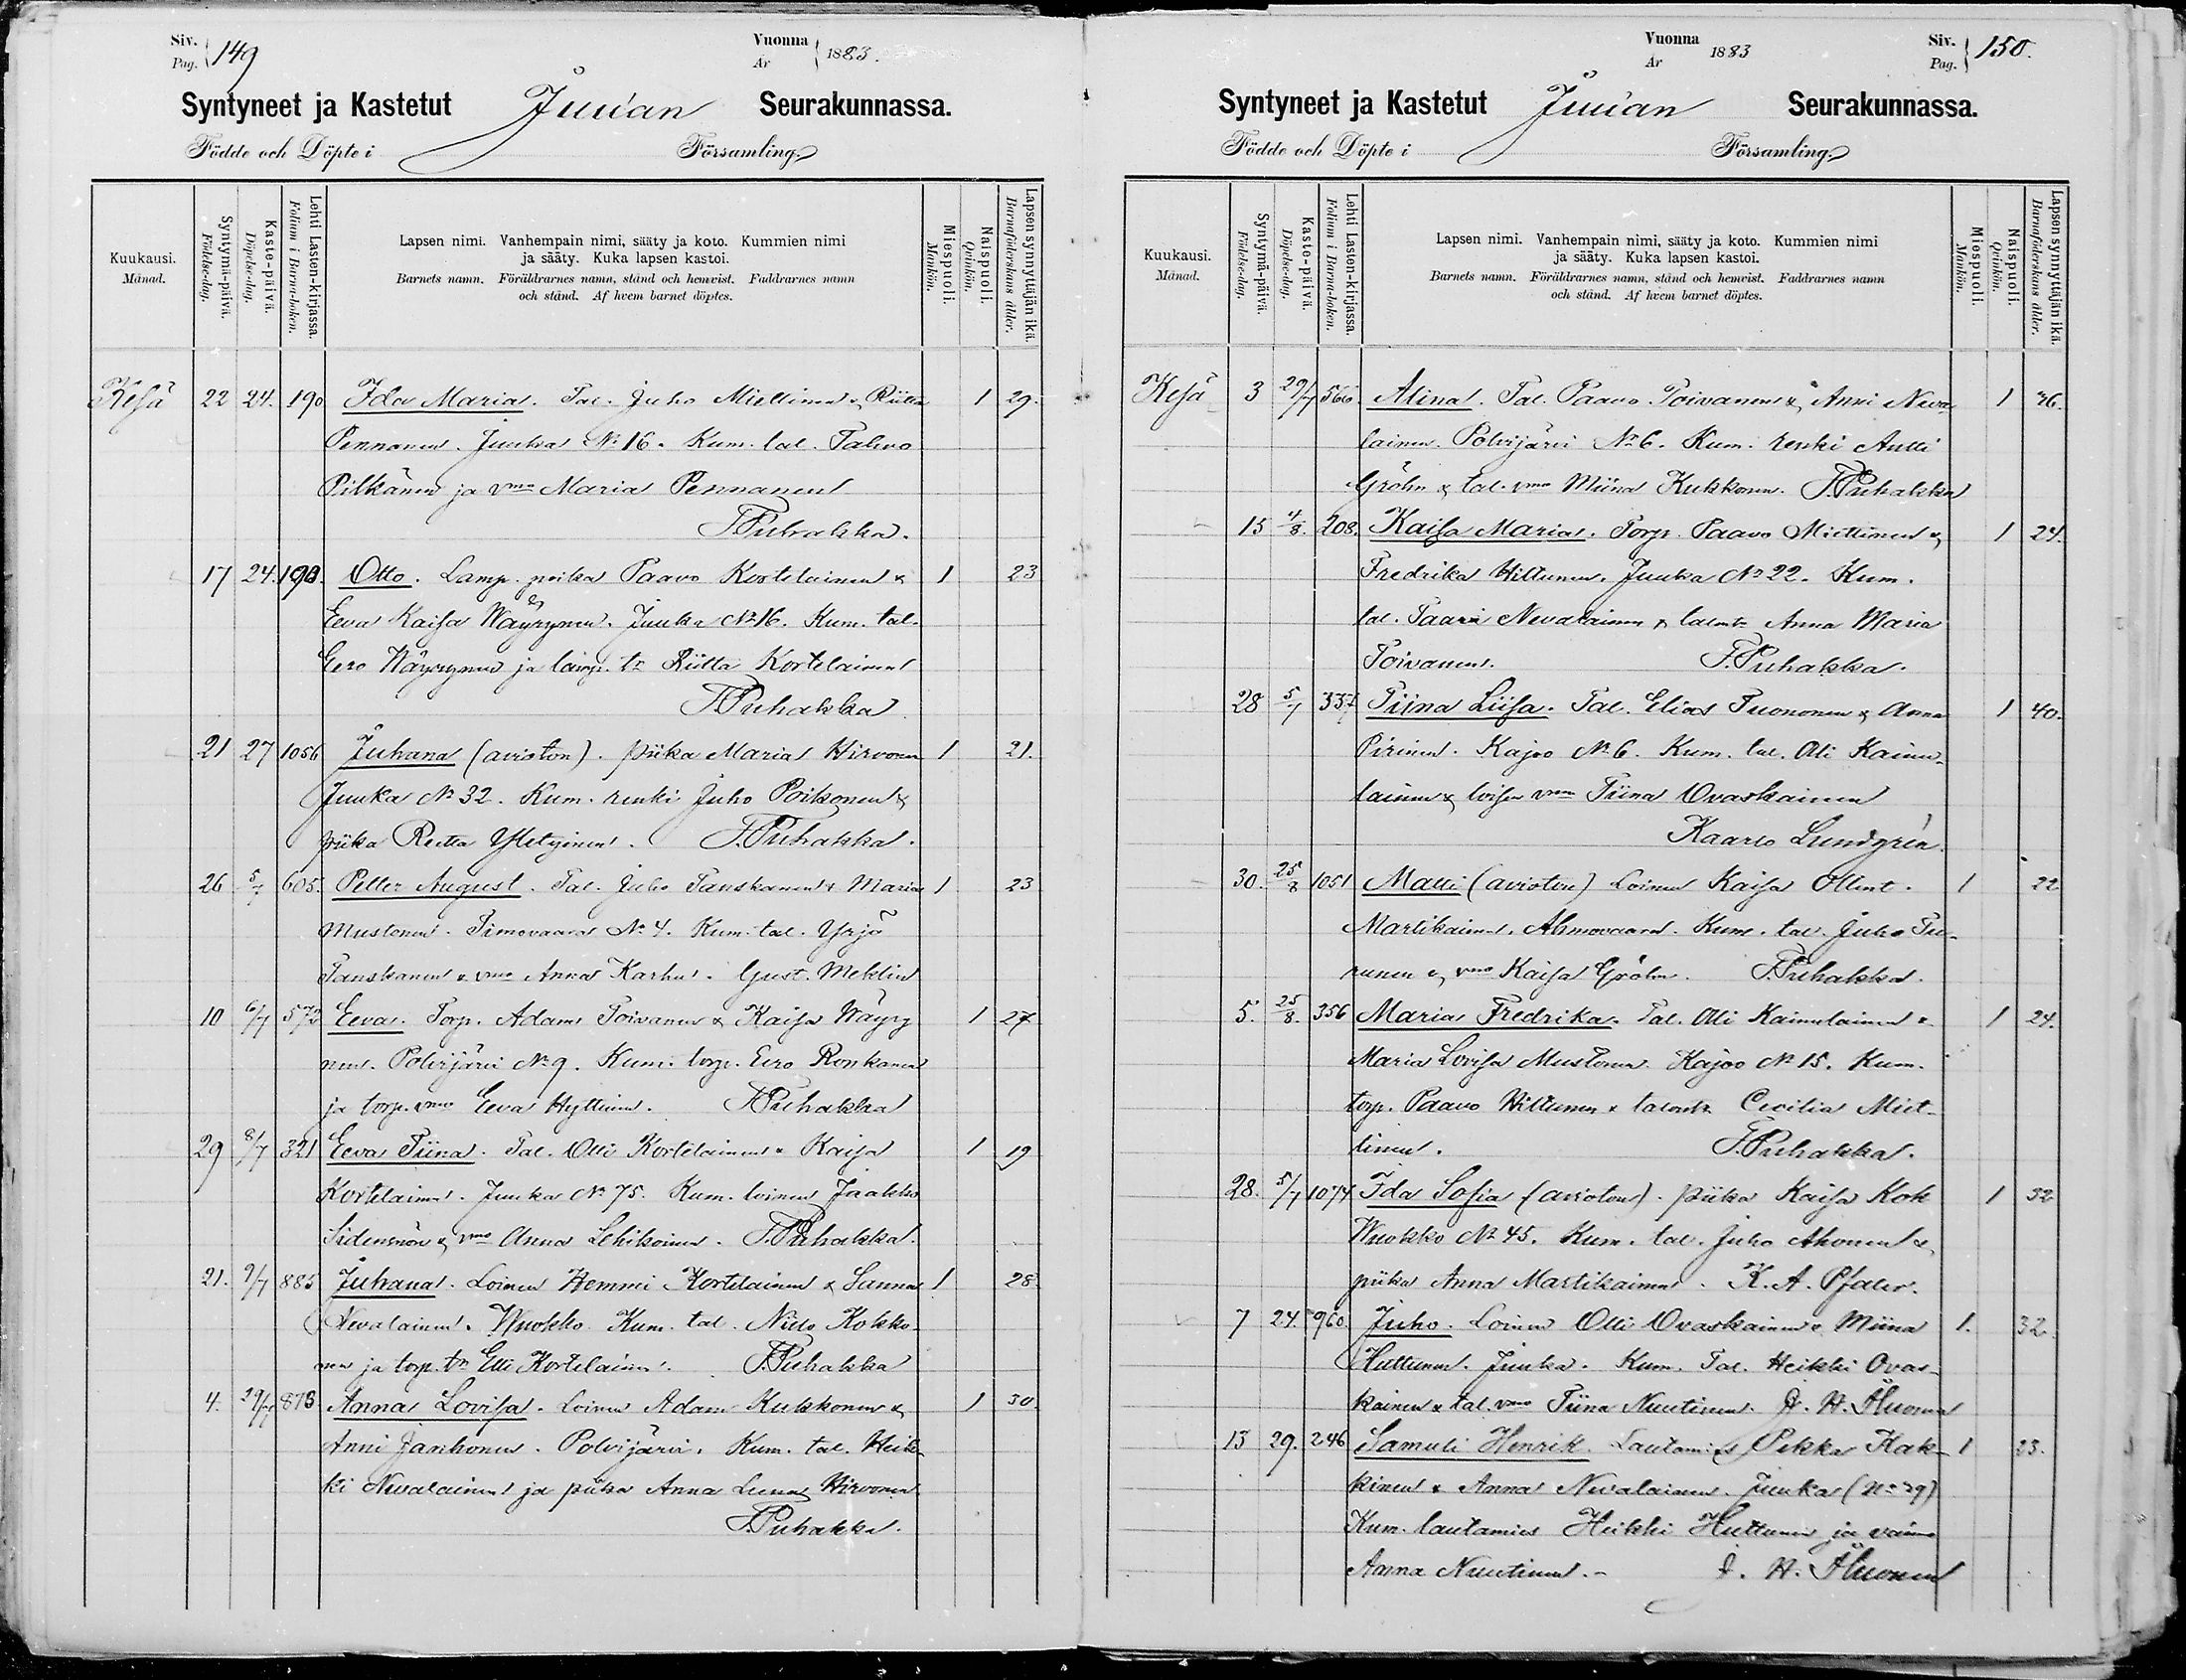 Siv. Pag. 149
Vuonna År 1883.
Syntyneet ja Kastetut Juuan Seurakunnassa.
Födde och Döpte i Församling.
Kuukausi. Månad.
Syntymä-päivä. Födelse-dag.
Kaste-päivä. Döpelse-dag.
Lehti Lasten-kirjassa. Folium i Barna-boken.
Lapsen nimi. Vanhempain nimi, sääty ja koto. Kummien nimi
ja sääty. Kuka lapsen kastoi.
Barnets namn. Föräldrarnes namn, stånd och hemvist. Faddrarnes namn
och stånd. Af hvem barnet döptes.
Miespuoli. Mankön.
Naispuoli. Qvinkön.
Lapsen synnyttäjän ikä. Barnaföderskans ålder.
Kesä 22 24. 190 Ida Maria. Tal. Juho Miettinen & Riitta 1 29.
Pennanen. Juuka No 16. Kum. tal. Tahvo
Pitkänen ja vmo Maria Pennanen
F. Puhakka.
17 24. 190. Otto. Lamp. poika Paavo Kortelainen & 1 23
Eeva Kaisa Wäyrynen. Juuka No 16. Kum. tal.
Eero Wäyrynen ja lamp. tr Riitta Kortelainen
F. Puhakka
21 27 1056 Juhana (avioton). piika Maria Hirvonen 1 21.
Juuka No 32. Kum. renki Juho Poikonen &
piika Reetta Yletyinen. F. Puhakka.
26 5/7 605. Petter August. Tal. Juho Tanskanen & Maria 1 23
Mustonen. Timovaara No 4. Kum. tal. Yrjö
Tanskanen & vmo Anna Karhu. Gust. Meklin
10 6/7 572 Eeva. Torp. Adam Toivanen & Kaisa Wäyry 1 27
nen. Polvijärvi No 9. Kum. torp. Eero Ronkanen
ja torp. vmo Eeva Hyttinen. F. Puhakka
29 8/7 321 Eeva Tiina. Tal. Olli Kortelainen & Kaisa 1 19
Kortelainen. Juuka No 75. Kum. loinen Jaakko
& vmo Anna Lehikoinen. F. Puhakka.
21. 9/7 Juhana. Loinen Hemmi Kortelainen & Sanna 1 28.
Nevalainen. Wuokko. Kum. tal. Niilo Kokko-
nen ja torp. tr Elli Kortelainen. F. Puhakka
4. 29/7 873 Anna Lovisa. Loinen Adam Kukkonen & 1 30.
Anni Janhonen. Polvijärvi. Kum. tal. Heik-
ki Nevalainen ja piika Anna Leena Hirvonen
F. Puhakka.
Vuonna År 1883
Siv. Pag. 150.
Syntyneet ja Kastetut Juuan Seurakunnassa.
Födde och Döpte i Församling.
Kuukausi. Månad.
Syntymä-päivä. Födelse-dag.
Kaste-päivä. Döpelse-dag.
Lehti Lasten-kirjassa. Folium i Barna-boken.
Lapsen nimi. Vanhempain nimi, sääty ja koto. Kummien nimi
ja sääty. Kuka lapsen kastoi.
Barnets namn. Föräldrarnes namn, stånd och hemvist. Faddrarnes namn
och stånd. Af hvem barnet döptes.
Miespuoli. Mankön.
Naispuoli. Qvinkön.
Lapsen synnyttäjän ikä. Barnaföderskans ålder.
Kesä 3 29/7 566. Alina. Tal. Paavo Toivanen & Anni Neva- 1
lainen. Polvijärvi No 6. Kum. renki Antti
Gröhn & tal. vmo Miina Kukkonen. F. Puhakka
15 4/8. 208. Kaisa Maria. Torp. Paavo Miettinen & 1 24.
Fredrika Hiltunen. Juuka No 22. Kum.
tal. Paavo Nevalainen & talontr Anna Maria
Toivanen. F. Puhakka.
28 5/7 337 Tiina Liisa. Tal. Elias Tuononen & Anna 1 40.
Pirinen. Kajoo No 6. Kum. tal. Olli Kainu-
lainen & loisen vmo Tiina Ovaskainen
Kaarlo Lundgrén.
30. 25/8 1051 Matti (avioton) Loinen Kaisa Ollint. 1 22
Martikainen. Ahmovaara. Kum. tal. Juho Tu-
runen & vmo Kaisa Gröhn. F. Puhakka.
5. 25/8. 356 Maria Fredrika. Tal. Olli Kainulainen & 1 24.
Maria Lovisa Mustonen. Kajoo No 15. Kum.
torp. Paavo Hiltunen & talontr Cecilia Miet-
tinen. F. Puhakka.
28. 5/7 1074 Ida Sofia (avioton). piika Kaisa Kok 1 32
Wuokko No 45. Kum. tal. Juho Ahonen &
piika Anna Martikainen. K. A. Pfaler.
7 24. 960. Juho. Loinen Olli Ovaskainen & Miina 1. 32.
Huttunen. Juuka. Kum. Tal. Heikki Ovas-
kainen & tal. vmo Tiina Nuutinen.
13 29. 246 Samuli Henrik. Lautamies Pekka Kak- 1 23.
kinen & Anna Nevalainen. Juuka (No 29)
Kum. lautamies Heikki Huttunen ja vaimo
Anna Nuutinen.